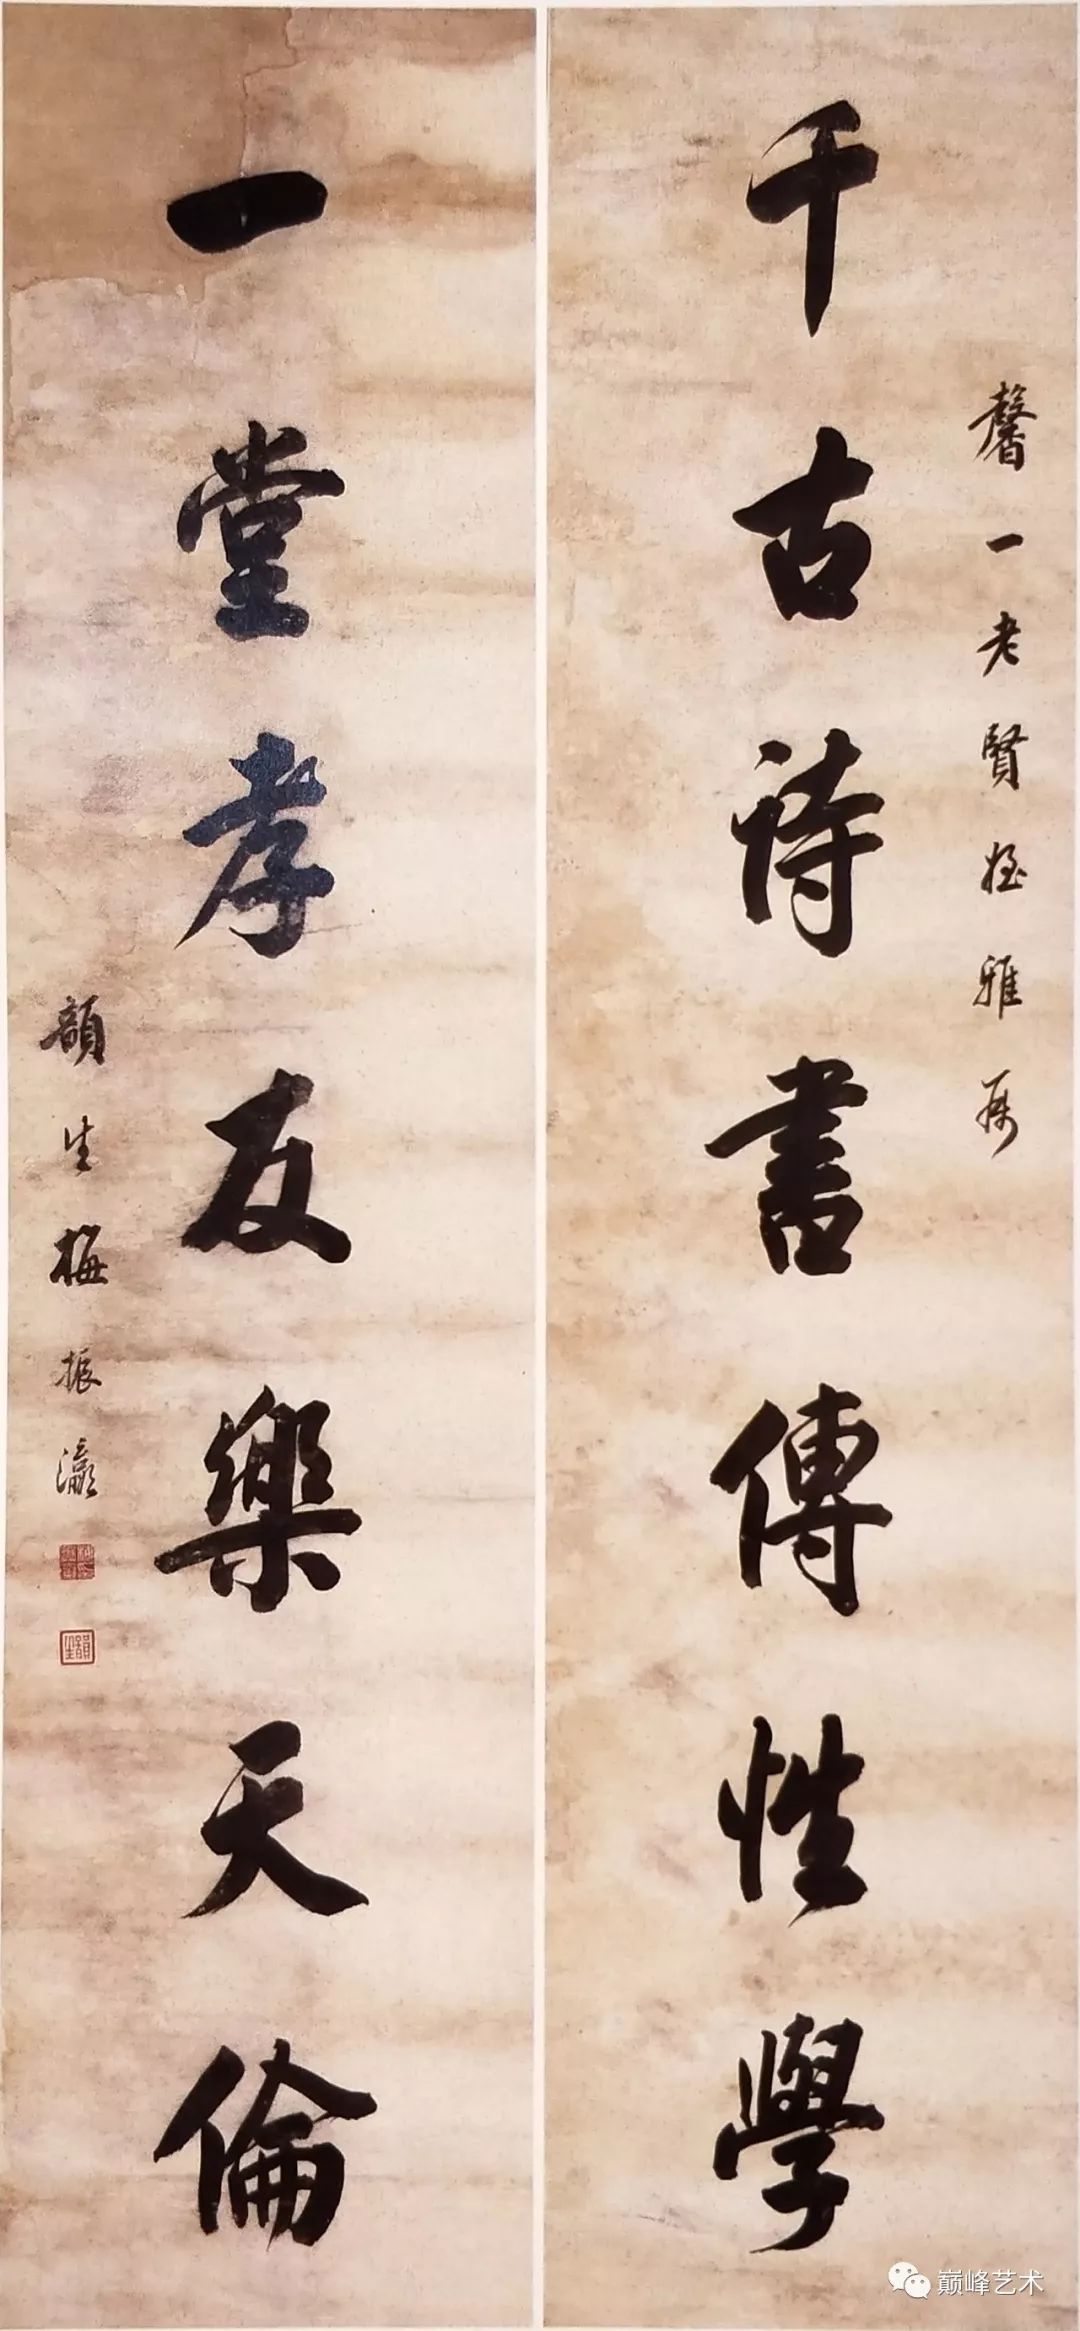 馨一老賢姪雅屬
千古詩書傳性學
一堂孝友樂天倫
韻生梅振瀛
韻生
巅峰艺术